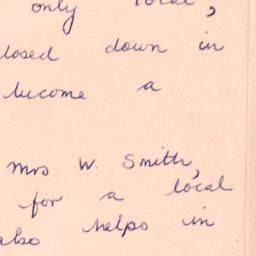 only local,
losed down in
become a
Mrs. W. Smith,
for a local
also helps in